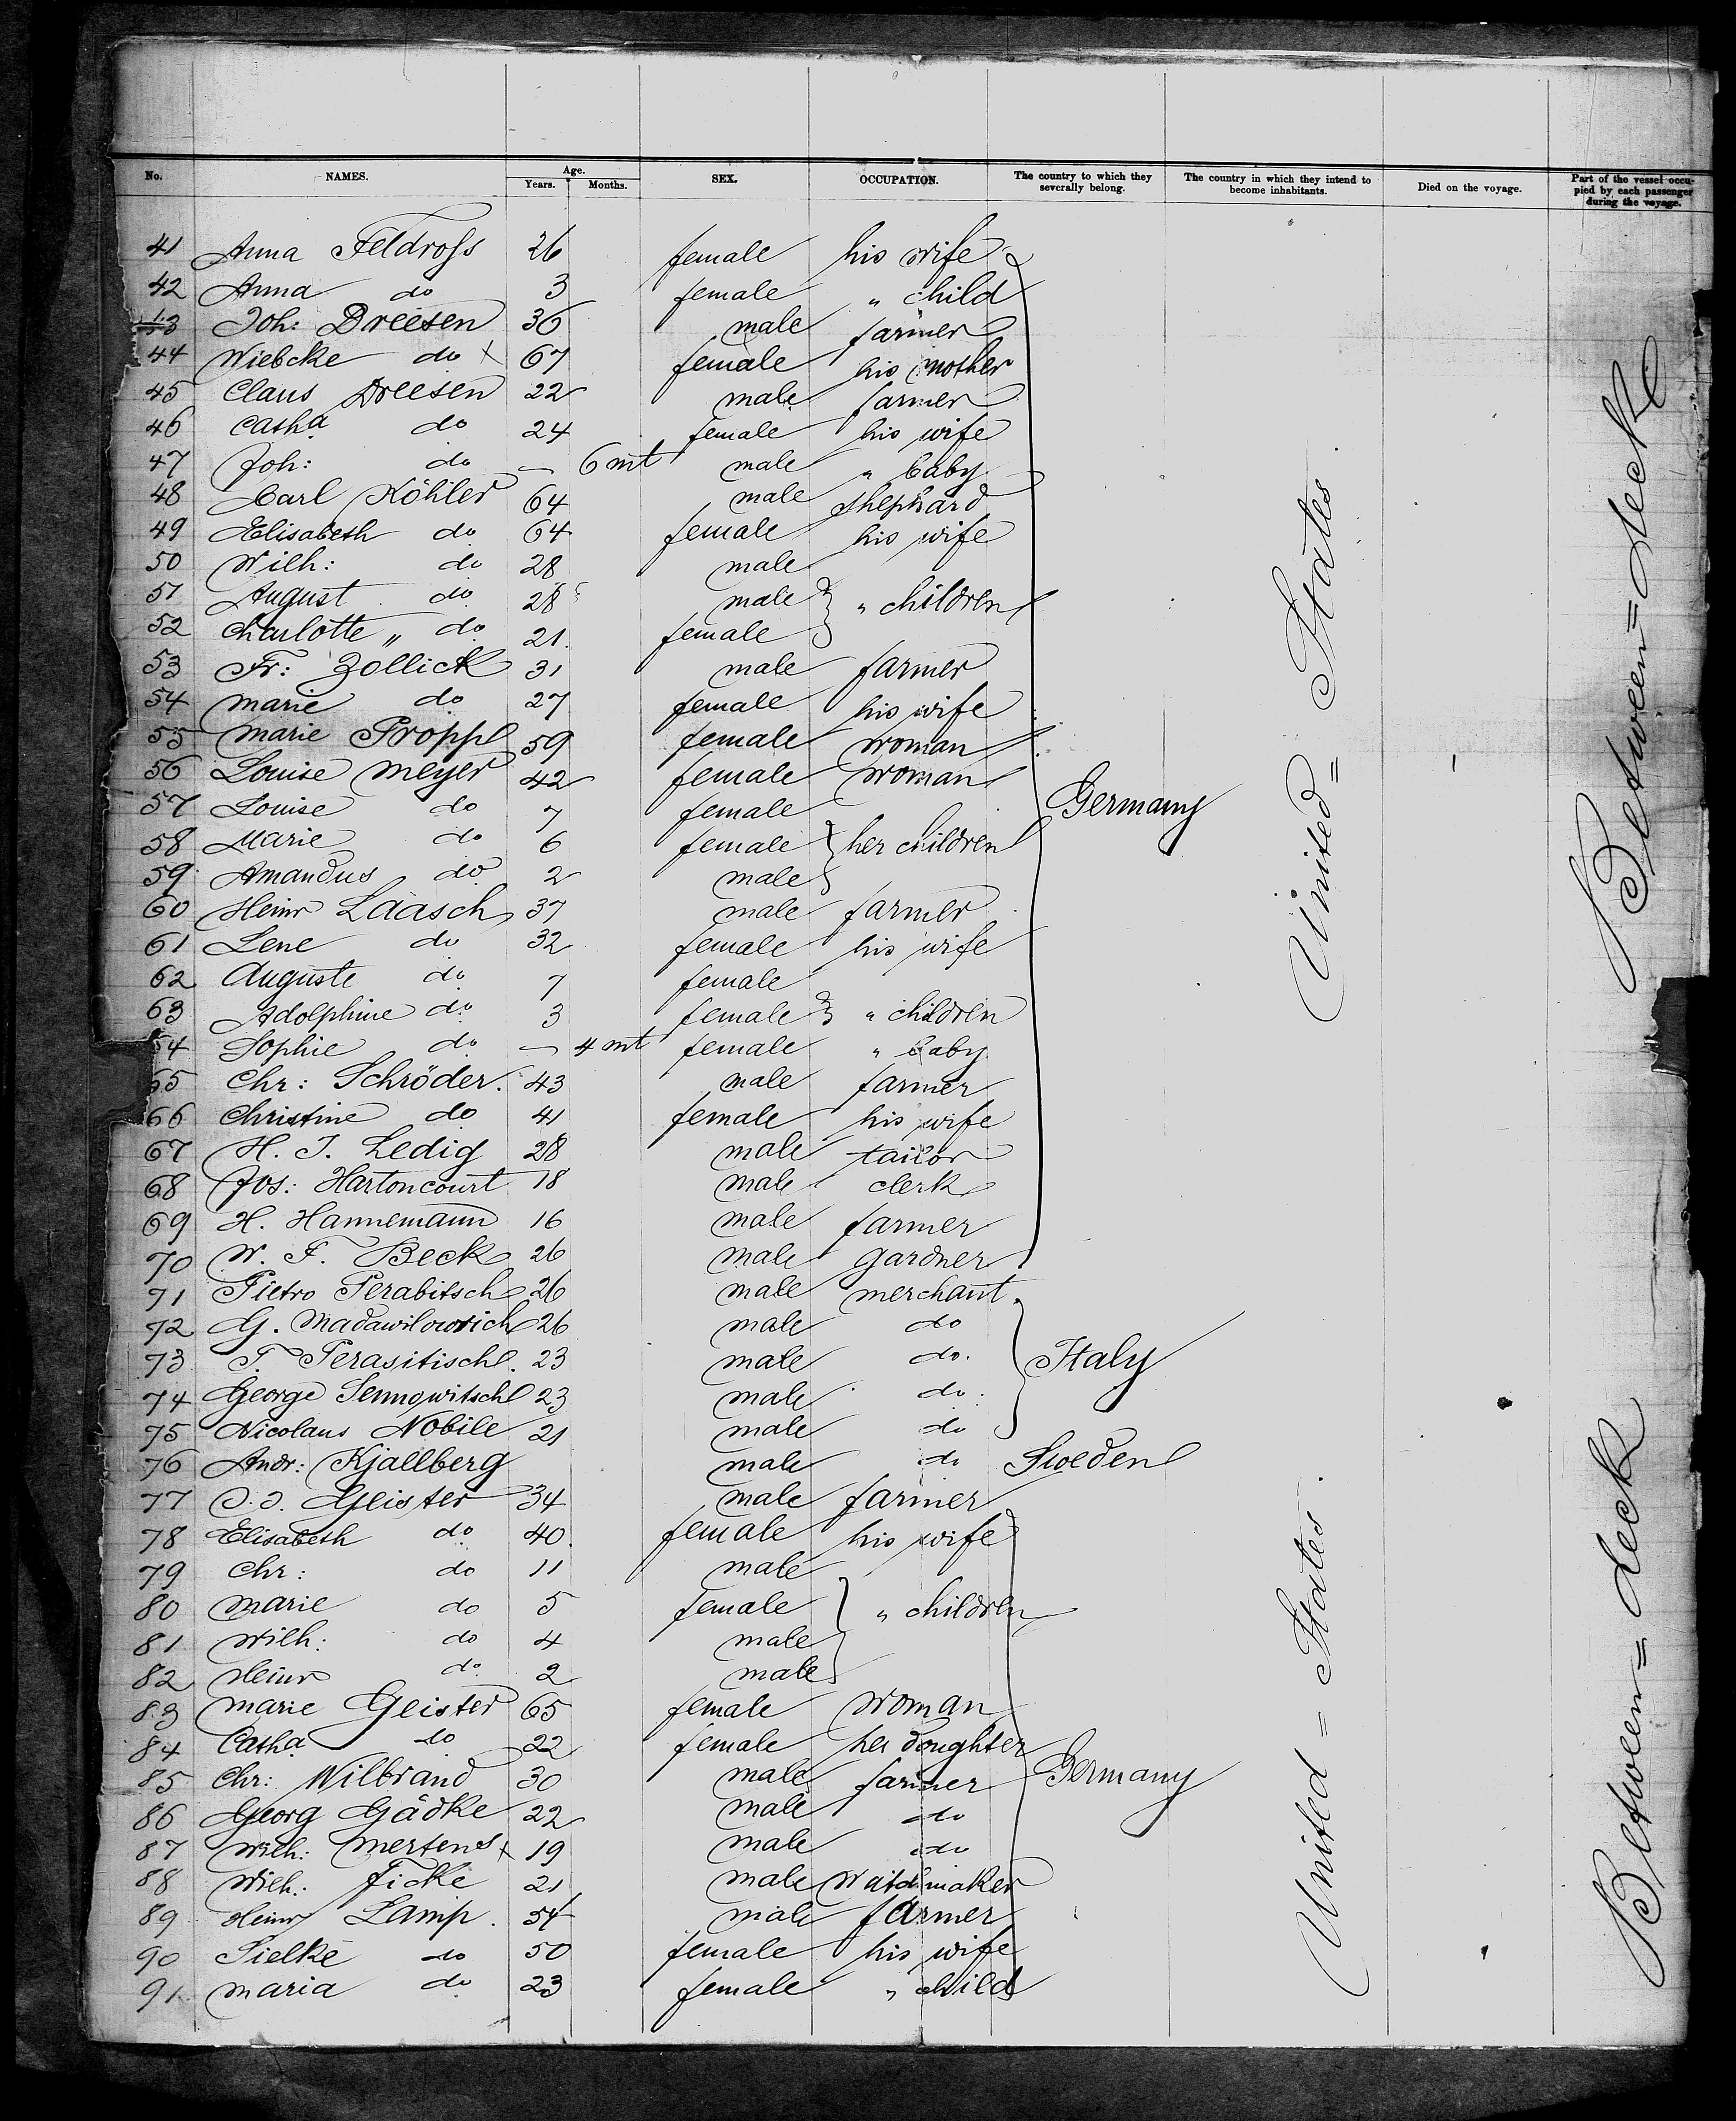 No. NAMES. Age. Years. Months. SEX. OCCUPATION. The country to which they severally belong. The country in which they intend to become inhabitants. Died on the voyage. Part of the vessel occupied by each passenger during the voyage.
41 Anna Feldross 26 female his wife
42 Anna do 3 female " child
43 Joh: Dreesen 36 male farmer
44 Wiebcke do x 67 female his mother
45 Claus Dreesen 22 male farmer
46 Catha do 24 female his wife
47 Joh: do — 6 mt male " baby
48 Carl Köhler 64 male shephard
49 Elisabeth do 64 female his wife
50 Wilh: do 28 male
51 August do 28 male } " children
52 Charlotte " do 21. female
53 Fr: Zollick 31 male farmer
54 Marie do 27 female his wife
55 Marie Propp 59 female woman
56 Louise Meyer 42 female woman
57 Louise do 7 female Germany United = States Between = deck
58 Marie do 6 female } her children
59 Amandus do 2 male
60 Heinr Laasch 37 male farmer
61 Lene do 32 female his wife
62 Auguste do 7 female
63 Adolphine do 3 female } " children
64 Sophie do — 4 mt female " baby
65 Chr: Schröder. 43 male farmer
66 Christine do 41 female his wife
67 H. J. Ledig 28 male tailor
68 Jos: Hartoncourt 18 male clerk
69 H. Hannemann 16 male farmer
70 W. F. Beck 26 male gardner
71 Pietro Perabitsch 26 male merchant
72 G. 26 male do
73 T. Perasitisch. 23 male do. Italy
74 George 23 male do.
75 Nicolaus Nobile 21 male do
76 Andr: Kjallberg male do Sweden
77 Geister 34 male farmer
78 Elisabeth do 40. female his wife
79 Chr: do 11 male
80 Marie do 5 female } " children
81 Wilh: do 4 male
82 Heinr do 2 male
83 Marie Geister 65 female woman
84 Catha do 22 female her doughter
85 Chr: Wilbrand 30 male farmer Germany United = States. Between = deck
86 Georg Gädke 22 male do
87 Wilh: Mertens x 19 male do
88 Wilh: Ficke 21 male Watchmaker
89 Heinr Lamp. 54 male farmer
90 Sielke do 50 female his wife
91 Maria do 23 female " child